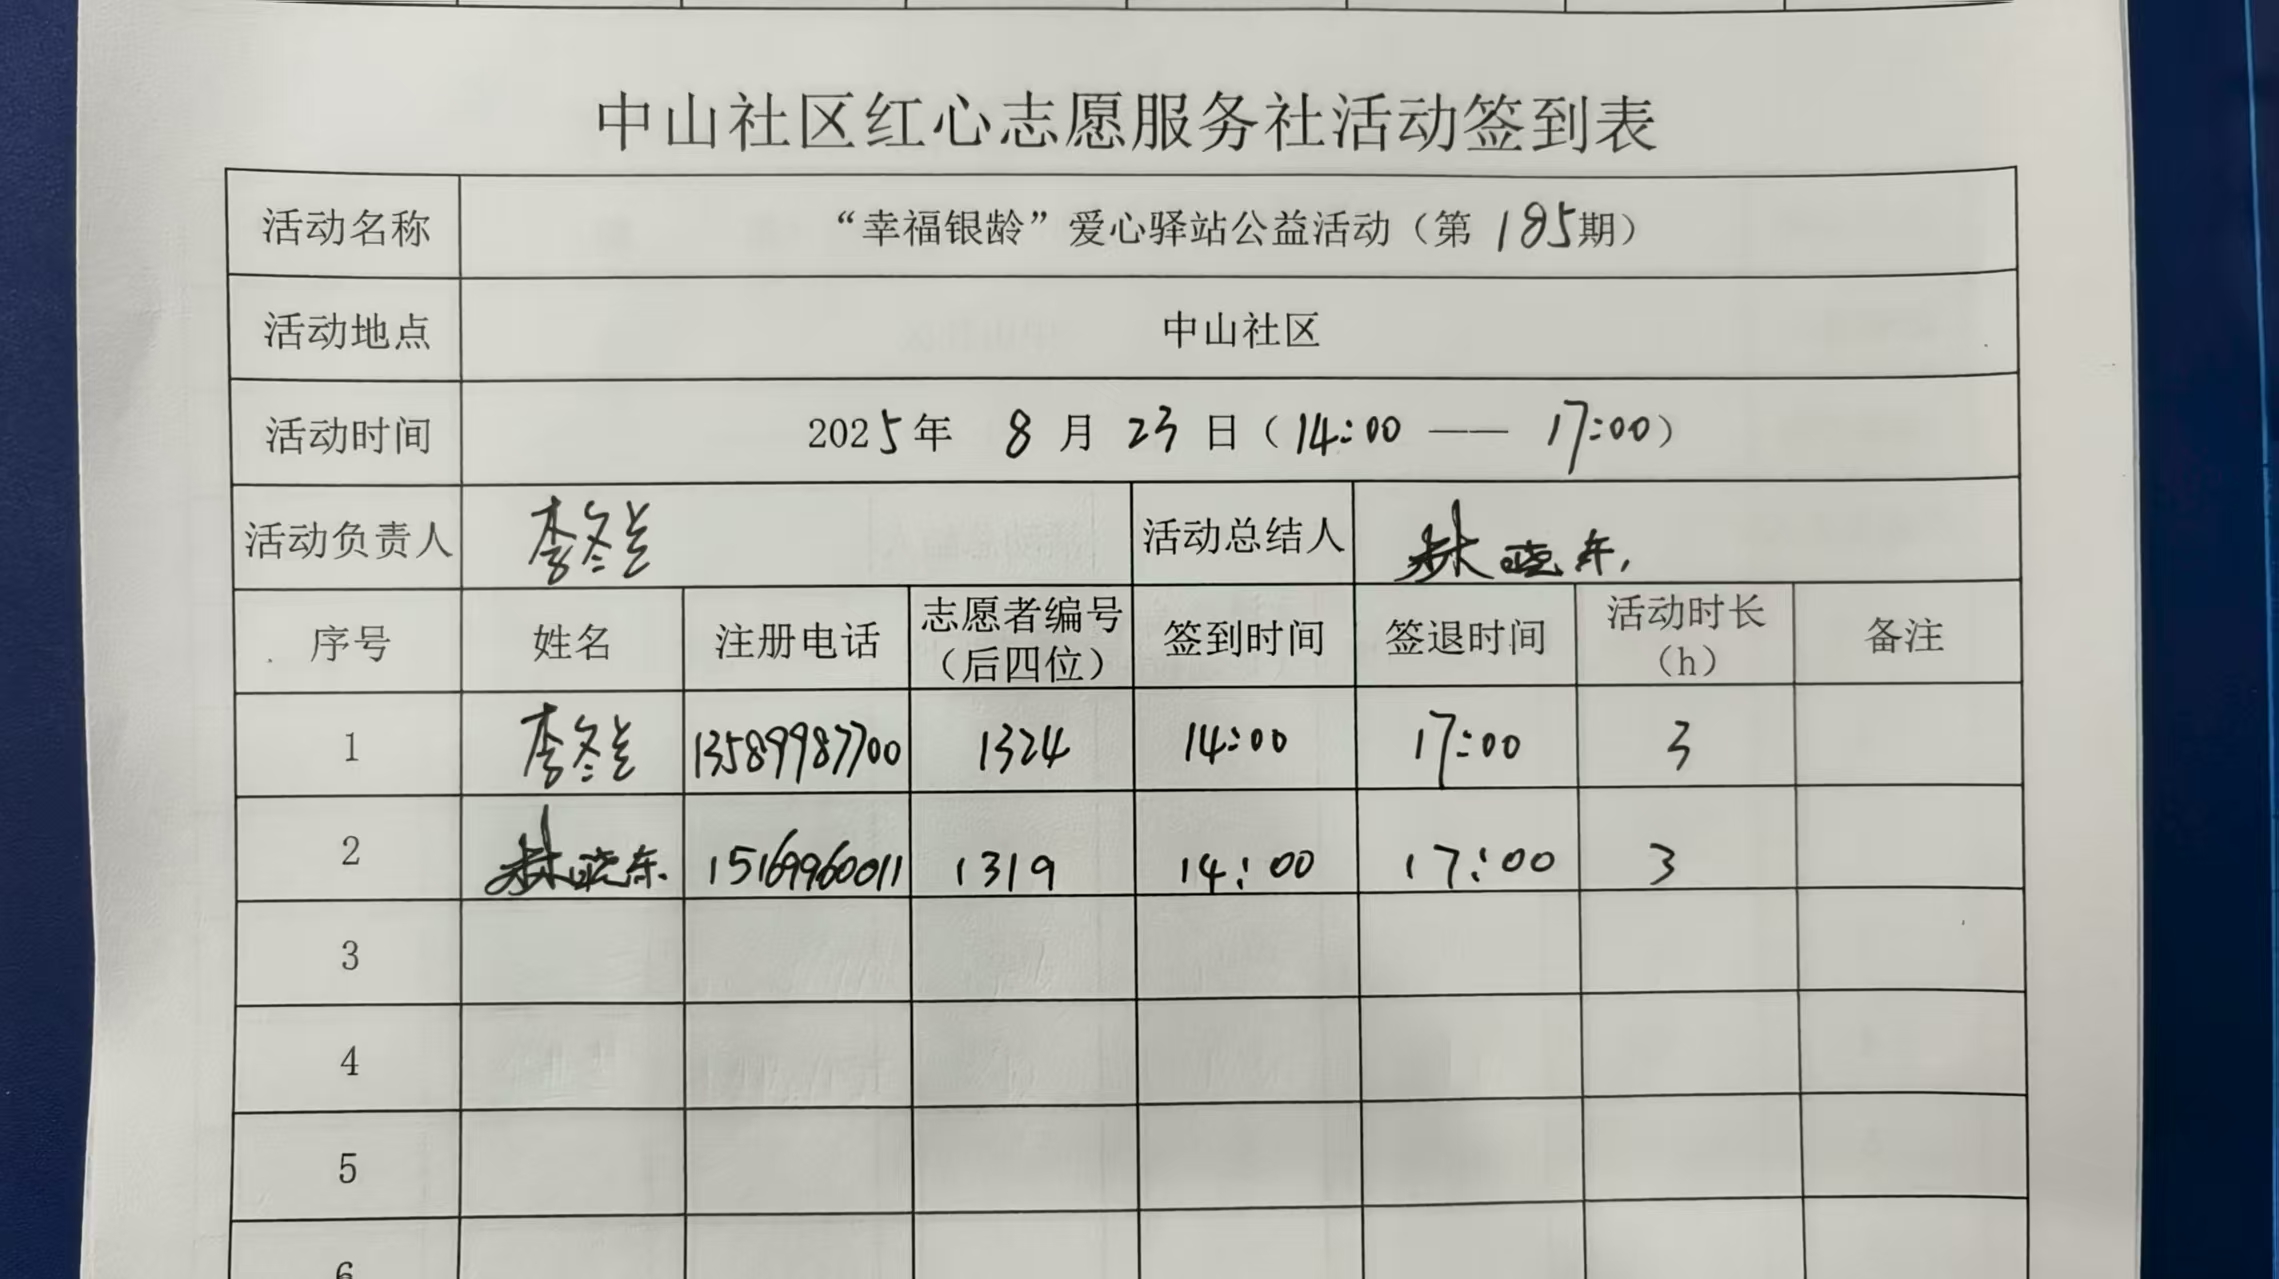 中山社区红心志愿服务社活动签到表
活动名称 “幸福银龄”爱心驿站公益活动（第 185期）
活动地点 中山社区
活动时间 2025年 8 月 23 日（14:00 —— 17:00）
活动负责人 李冬兰 活动总结人 林晓东
序号 姓名 注册电话 志愿者编号（后四位） 签到时间 签退时间 活动时长（h） 备注
1 李冬兰 13589987700 1324 14:00 17:00 3
2 林晓东 15169960011 1319 14:00 17:00 3
3
4
5
6